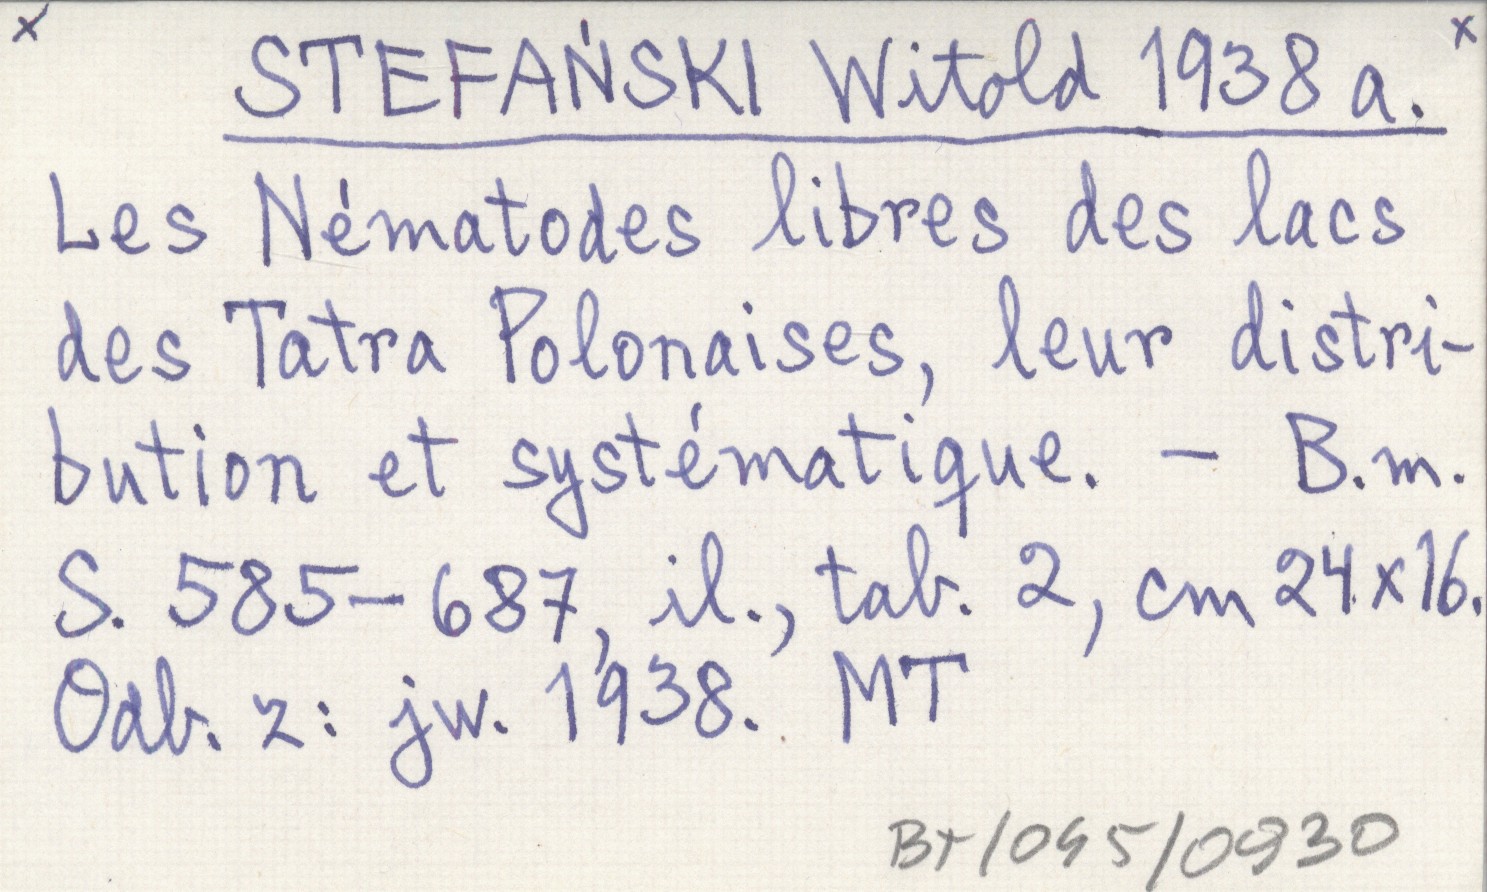 x x
STEFAŃSKI Witold 1938 a.
Les Nématodes libres des lacs
des Tatra Polonaises, leur distri-
bution et systématique. – B.m.
S. 585–687, il., tab. 2, cm 24x16.
Odb. z: jw. 1938. MT